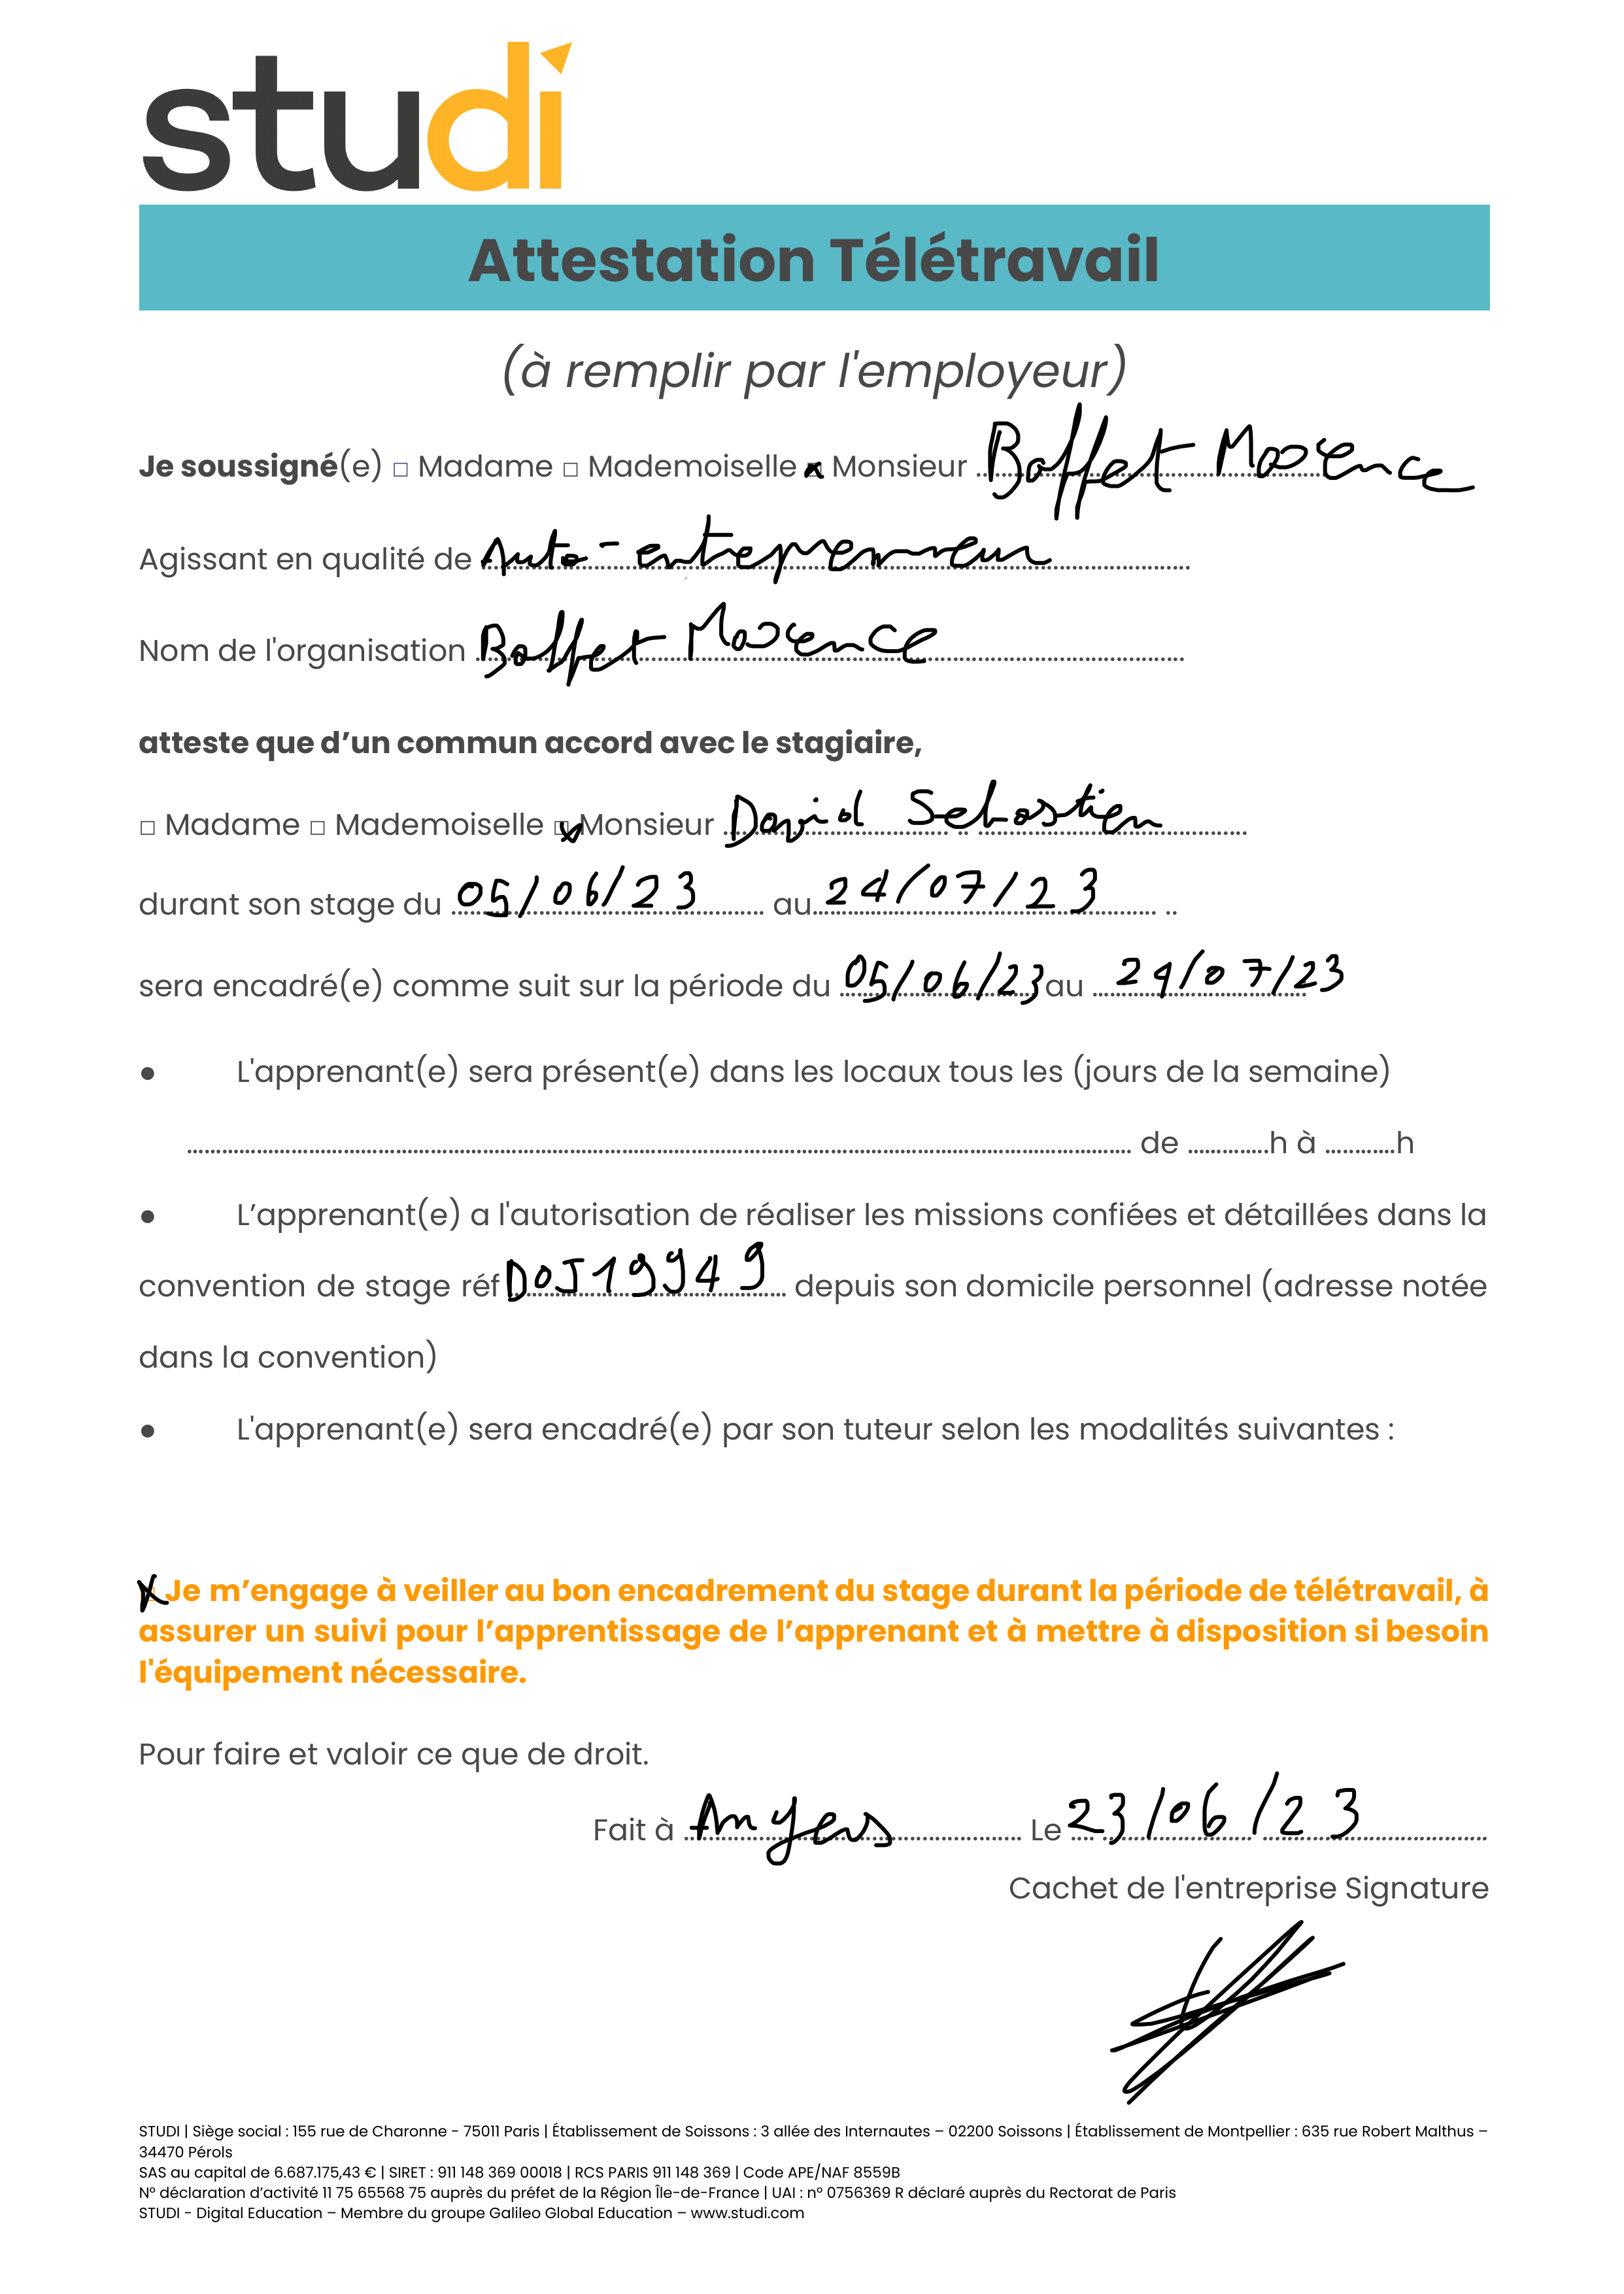 studi
Attestation Télétravail
(à remplir par l'employeur)
Je soussigné(e) □ Madame □ Mademoiselle x Monsieur Boffet Maxence
Agissant en qualité de Auto-entreprenneur
Nom de l'organisation Boffet Maxence
atteste que d’un commun accord avec le stagiaire,
□ Madame □ Mademoiselle x Monsieur David Sebastien
durant son stage du 05/06/23 au 24/07/23
sera encadré(e) comme suit sur la période du 05/06/23 au 24/07/23
● L'apprenant(e) sera présent(e) dans les locaux tous les (jours de la semaine)
........ de ........h à ........h
● L’apprenant(e) a l'autorisation de réaliser les missions confiées et détaillées dans la
convention de stage réf DOJ19949 depuis son domicile personnel (adresse notée
dans la convention)
● L'apprenant(e) sera encadré(e) par son tuteur selon les modalités suivantes :
x Je m’engage à veiller au bon encadrement du stage durant la période de télétravail, à
assurer un suivi pour l’apprentissage de l’apprenant et à mettre à disposition si besoin
l'équipement nécessaire.
Pour faire et valoir ce que de droit.
Fait à Angers Le 23/06/23
Cachet de l'entreprise Signature
STUDI | Siège social : 155 rue de Charonne - 75011 Paris | Établissement de Soissons : 3 allée des Internautes – 02200 Soissons | Établissement de Montpellier : 635 rue Robert Malthus –
34470 Pérols
SAS au capital de 6.687.175,43 € | SIRET : 911 148 369 00018 | RCS PARIS 911 148 369 | Code APE/NAF 8559B
N° déclaration d’activité 11 75 65568 75 auprès du préfet de la Région Île-de-France | UAI : n° 0756369 R déclaré auprès du Rectorat de Paris
STUDI - Digital Education – Membre du groupe Galileo Global Education – www.studi.com